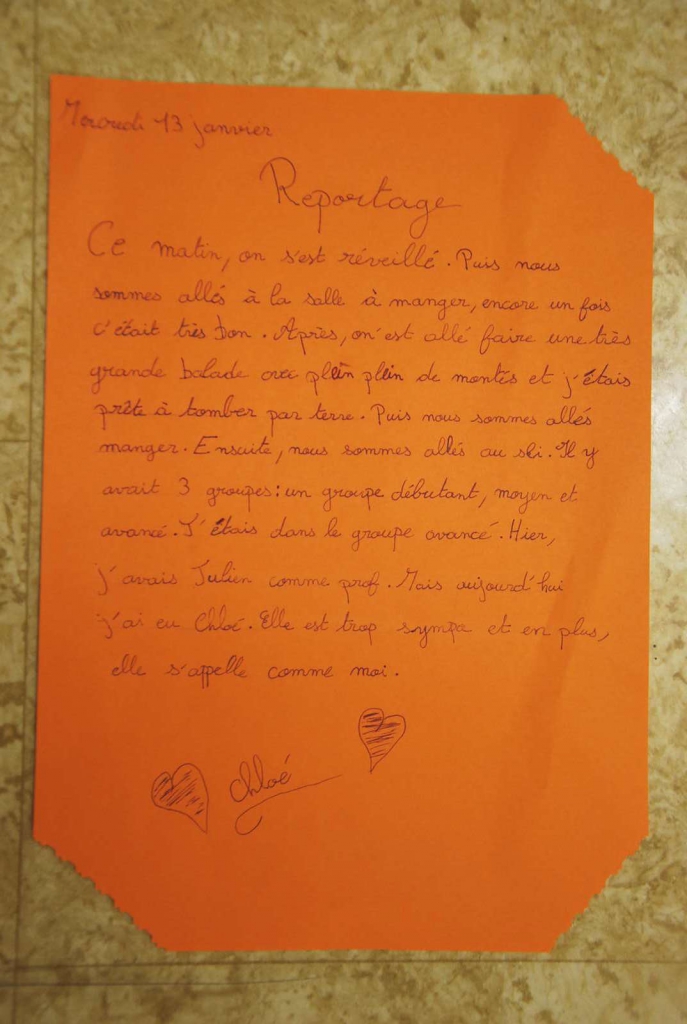 Mercredi 13 janvier
Reportage
Ce matin, on s'est réveillé. Puis nous
sommes allés à la salle à manger, encore un fois
c'était très bon. Après, on est allé faire une très
grande balade avec plein plein de montés et j'étais
prête à tomber par terre. Puis nous sommes allés
manger. Ensuite, nous sommes allés au ski. Il y
avait 3 groupes: un groupe débutant, moyen et
avancé. J'étais dans le groupe avancé. Hier,
j'avais Julien comme prof. Mais aujourd'hui
j'ai eu Chloé. Elle est trop sympa et en plus,
elle s'appelle comme moi.
Chloé